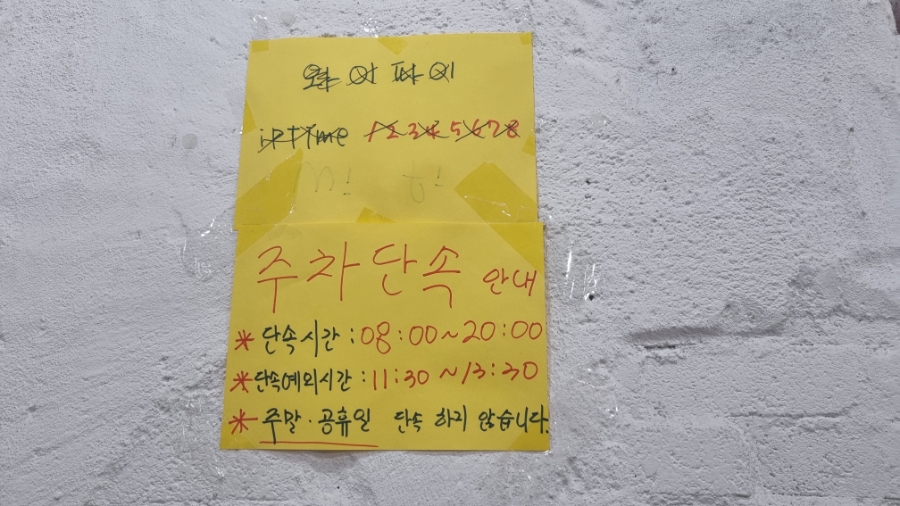 와이파이
iptime 12345678
주차단속 안내
* 단속시간 : 08:00~20:00
* 단속예외시간 : 11:30 ~ 13:30
* 주말·공휴일 단속 하지 않습니다.